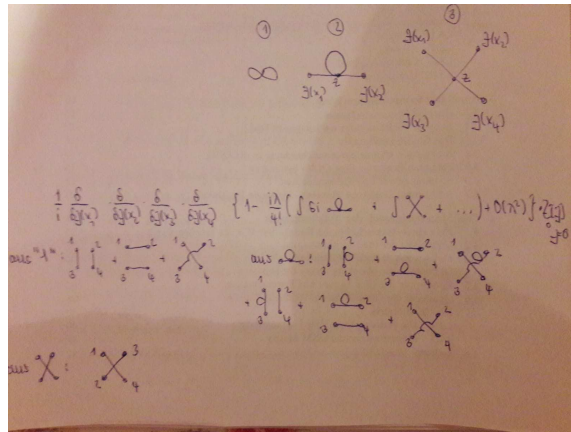 ① ② ③
J(x₁) J(x₂)
z z
J(x₁) J(x₂)
J(x₃) J(x₄)
1/i δ/δJ(x₁) · δ/δJ(x₂) · δ/δJ(x₃) · δ/δJ(x₄) {1 - iλ/4! (∫ 6i + ∫ + ...) + O(λ²)} · Z[J] J=0
aus "1": 1 2 3 4 + 1 2 3 4 + 1 2 3 4 aus : 1 2 3 4 + 1 2 3 4 + 1 2 3 4
+ 1 2 3 4 + 1 2 3 4 + 1 2 3 4
aus : 1 3 2 4